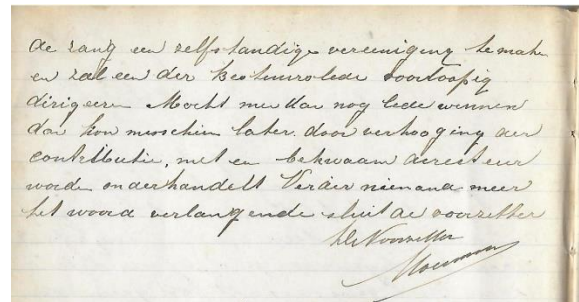 de zang een zelfstandige vereeniging te make
en zal een der bestuurslede voorloopig
dirigeeren Mocht men dan nog lede winnen
dan kon misschien later door verhooging der
contributie, met en bekwaam directeur
worden onderhandelt Verder niemand meer
het woord verlangende sluit de voorzitter
De Voorzitter